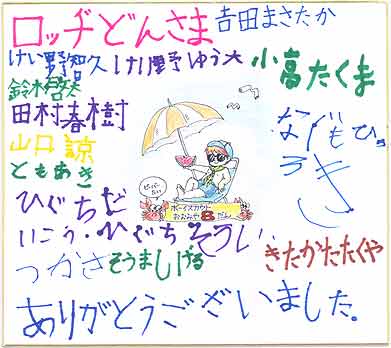 ロッヂどんさま
吉田まさたか
けい野智久
けい野ゆう大
小高たくま
鈴木啓太
田村春樹
山口諒
ともあき
ひぐちだ
いこう・ひぐちそうい
つかさ
そうましげる
きたかたたくや
ボーイスカウト
おおみや8だん
ありがとうございました。